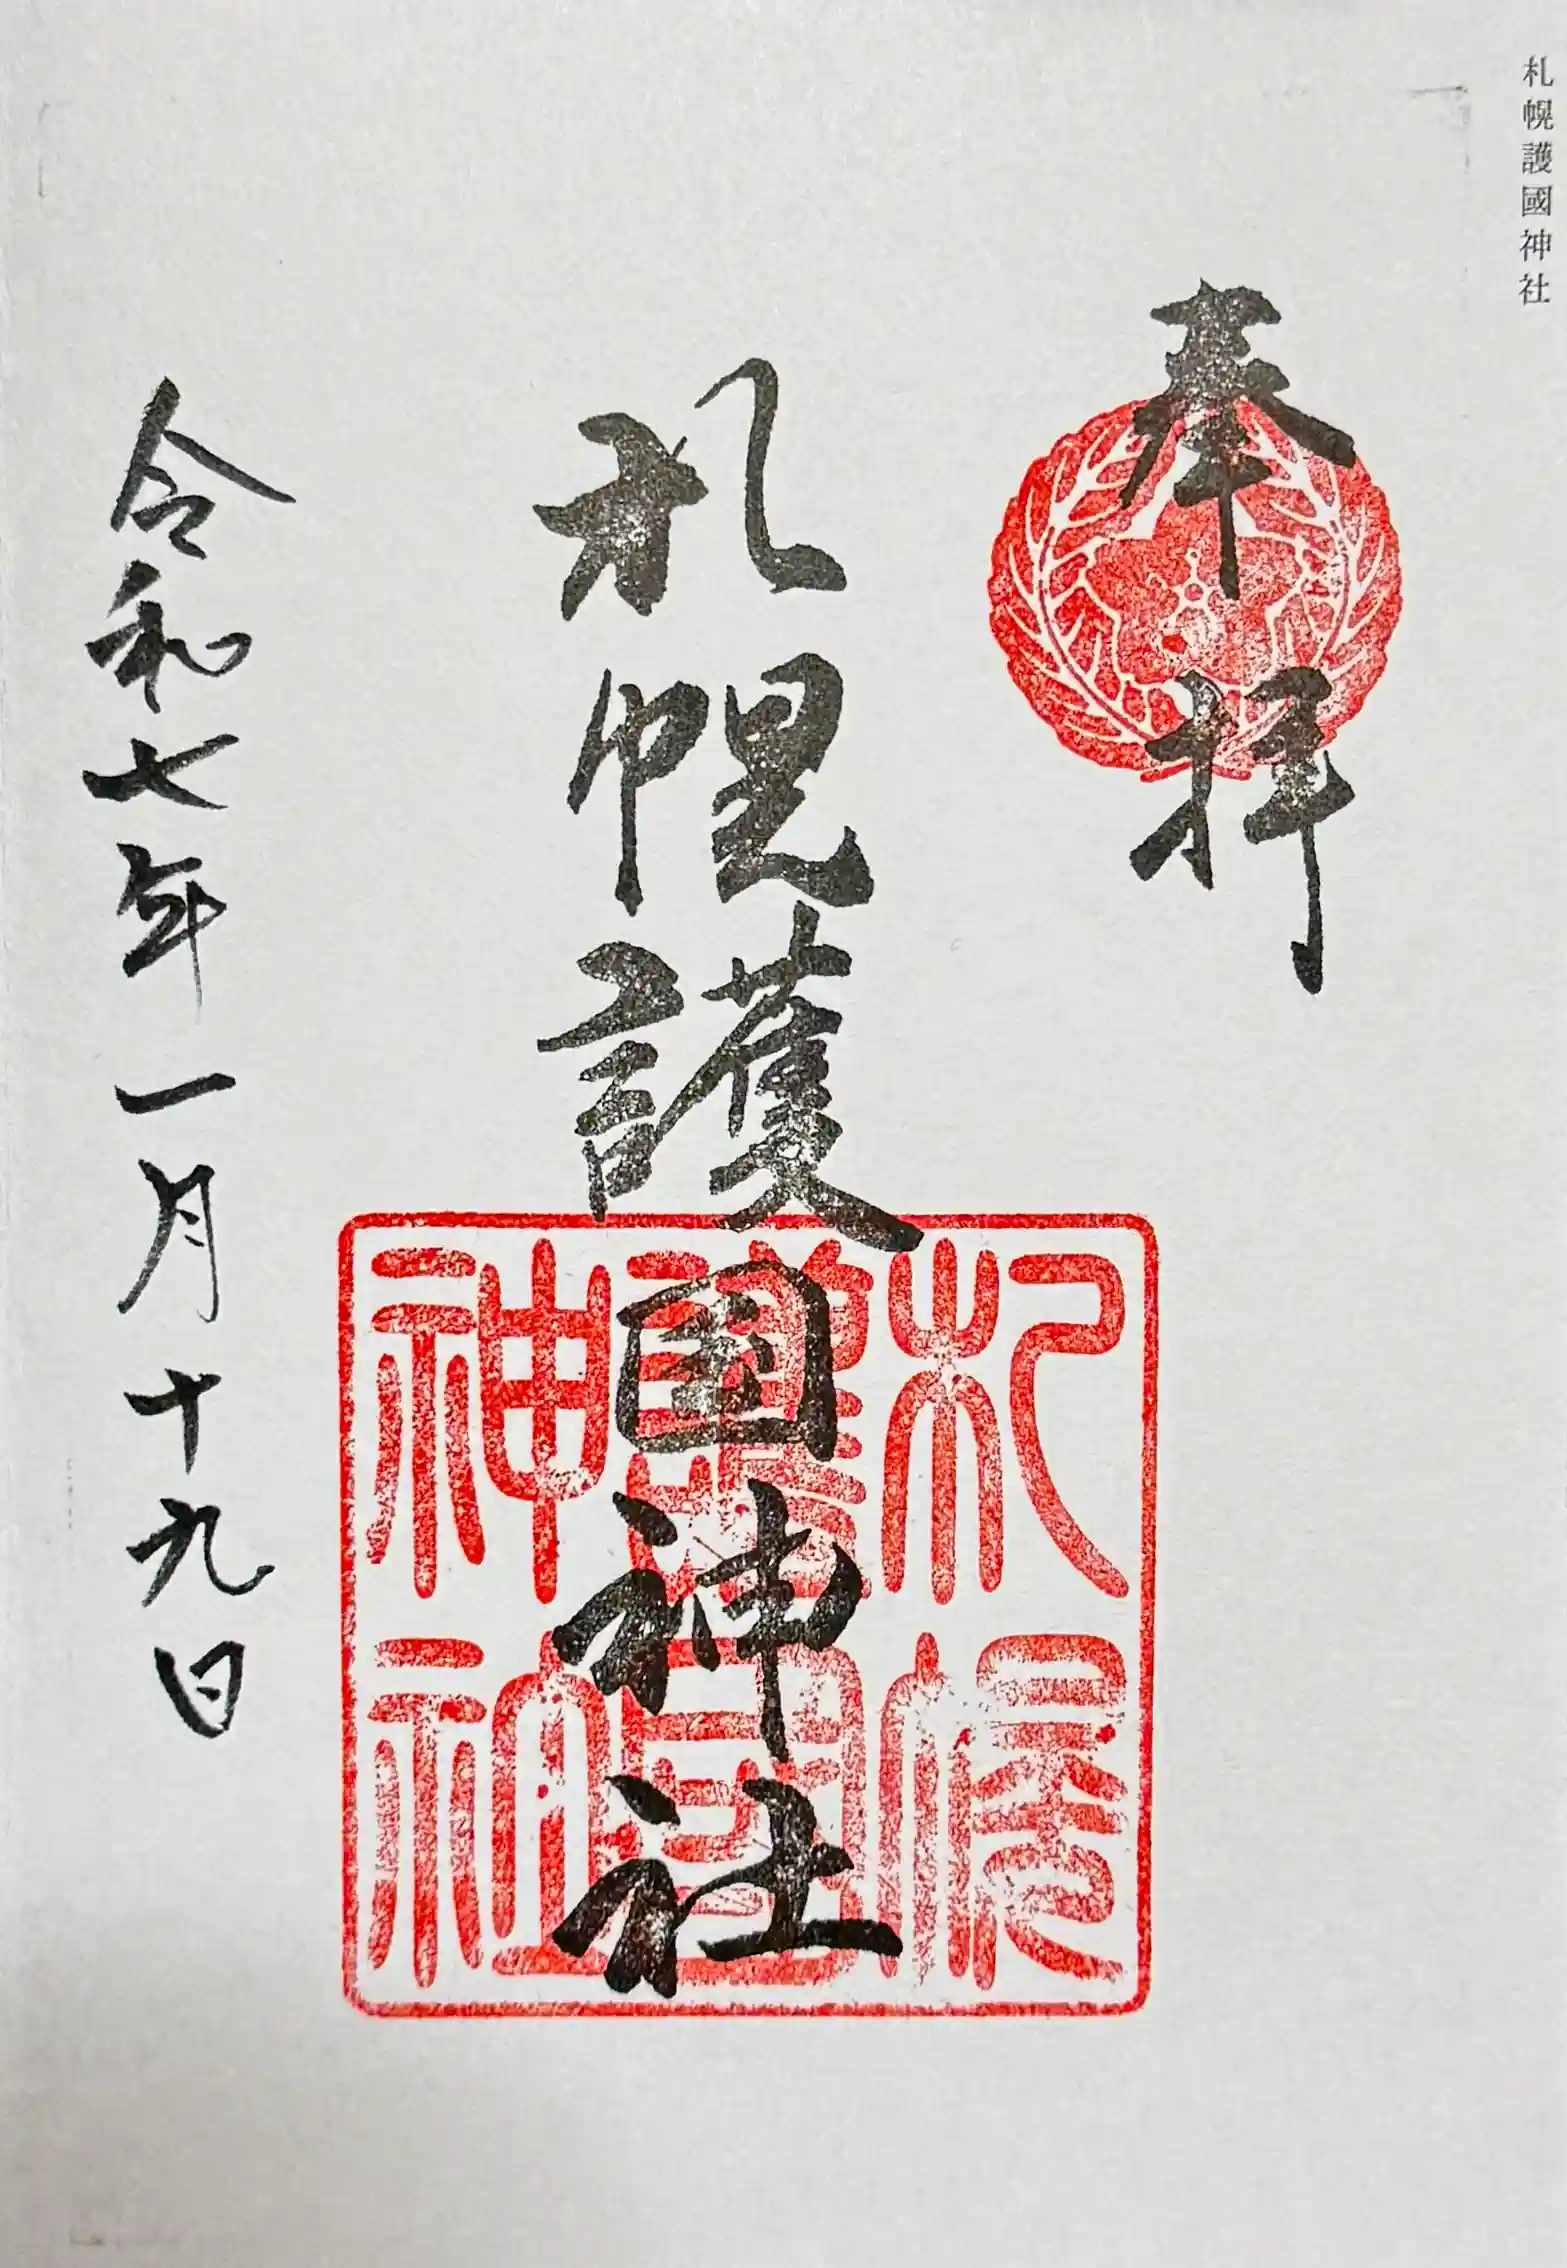 札幌護國神社
奉拝
札幌護国神社
札幌護國神社
令和七年一月十九日